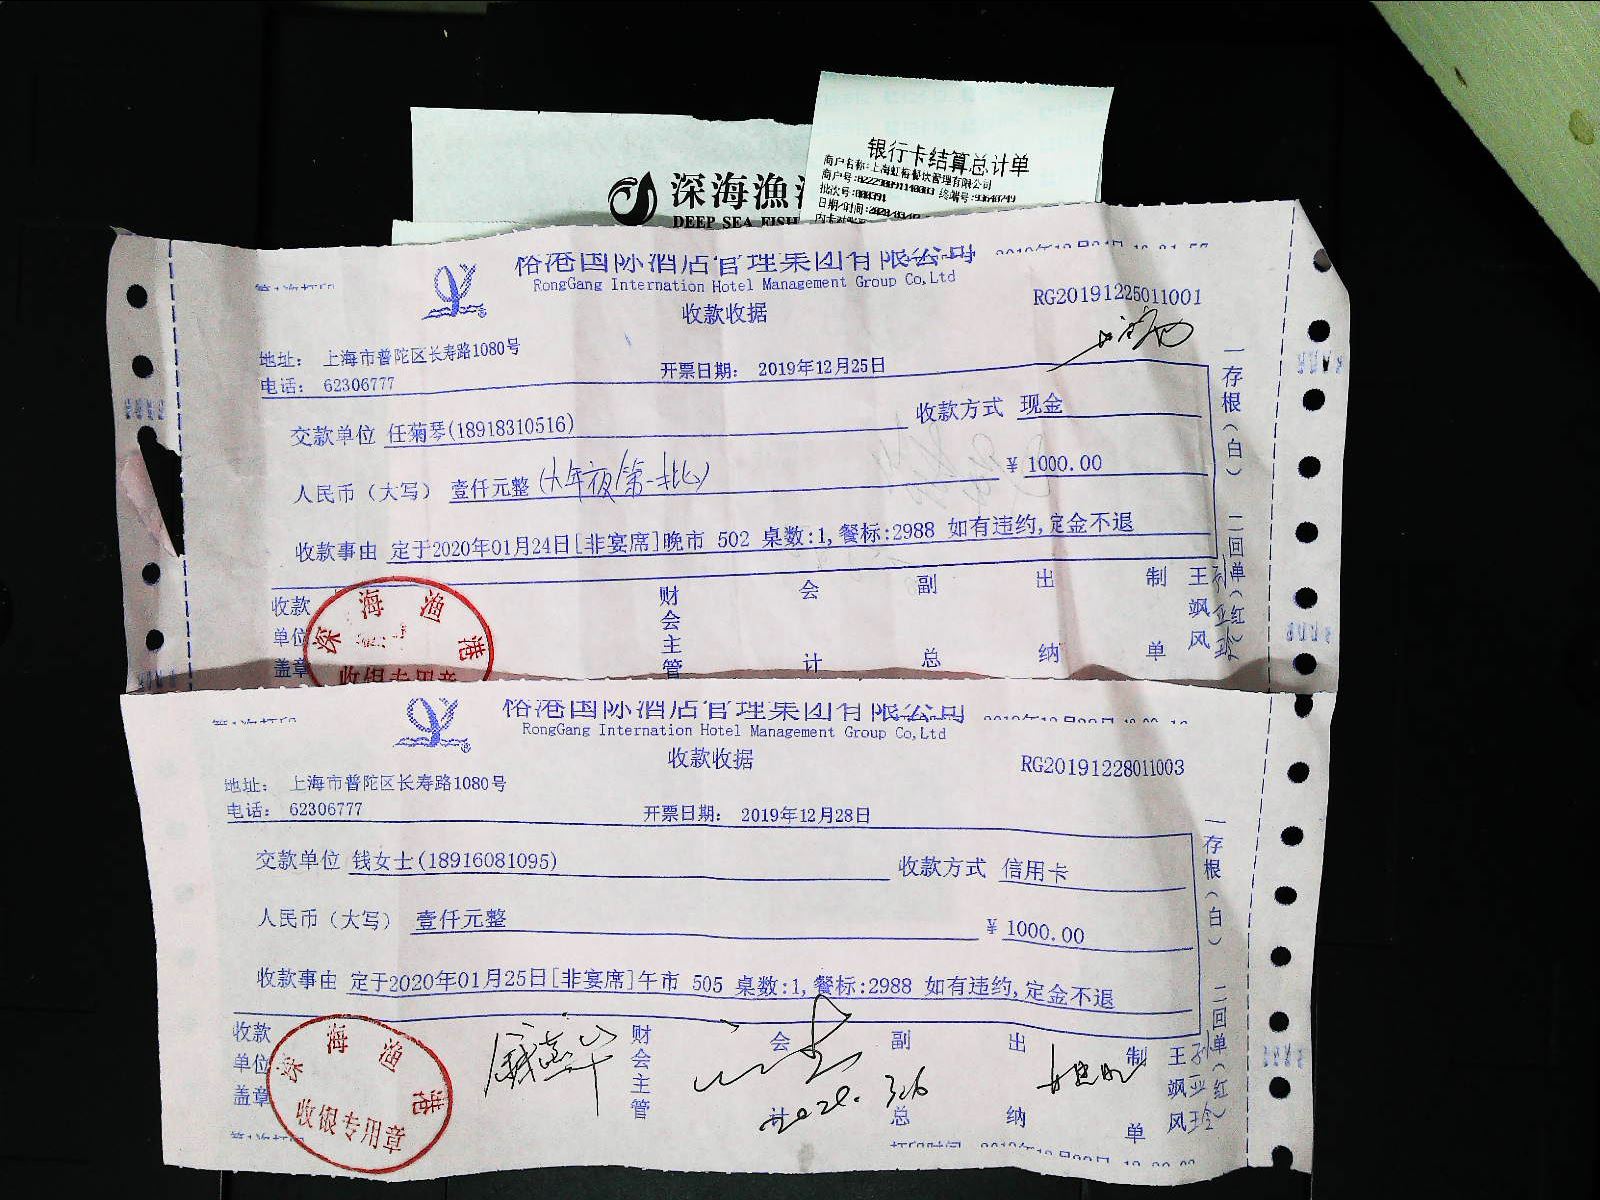 银行卡结算总计单
商户名称:上海虹裕餐饮管理有限公司
深海渔
DEEP SEA FISH
裕港国际酒店管理集团有限公司
RongGang Internation Hotel Management Group Co,Ltd
收款收据
RG20191225011001
地址: 上海市普陀区长寿路1080号
电话: 62306777
开票日期: 2019年12月25日
交款单位 任菊琴(18918310516)
收款方式 现金
人民币(大写) 壹仟元整(大年夜/第一批)
¥ 1000.00
收款事由 定于2020年01月24日[非宴席]晚市 502 桌数:1,餐标:2988 如有违约,定金不退
收款单位盖章
财会主管
会计
副总
出纳
制单
王飒风
一存根(白)
二回单(红)
深海渔港
收银专用章
裕港国际酒店管理集团有限公司
RongGang Internation Hotel Management Group Co,Ltd
收款收据
RG20191228011003
地址: 上海市普陀区长寿路1080号
电话: 62306777
开票日期: 2019年12月28日
交款单位 钱女士(18916081095)
收款方式 信用卡
人民币(大写) 壹仟元整
¥ 1000.00
收款事由 定于2020年01月25日[非宴席]午市 505 桌数:1,餐标:2988 如有违约,定金不退
收款单位盖章
财会主管
会计
副总
出纳
制单
王飒风
孙亚玲
一存根(白)
二回单(红)
深海渔港
收银专用章
2020.3.26